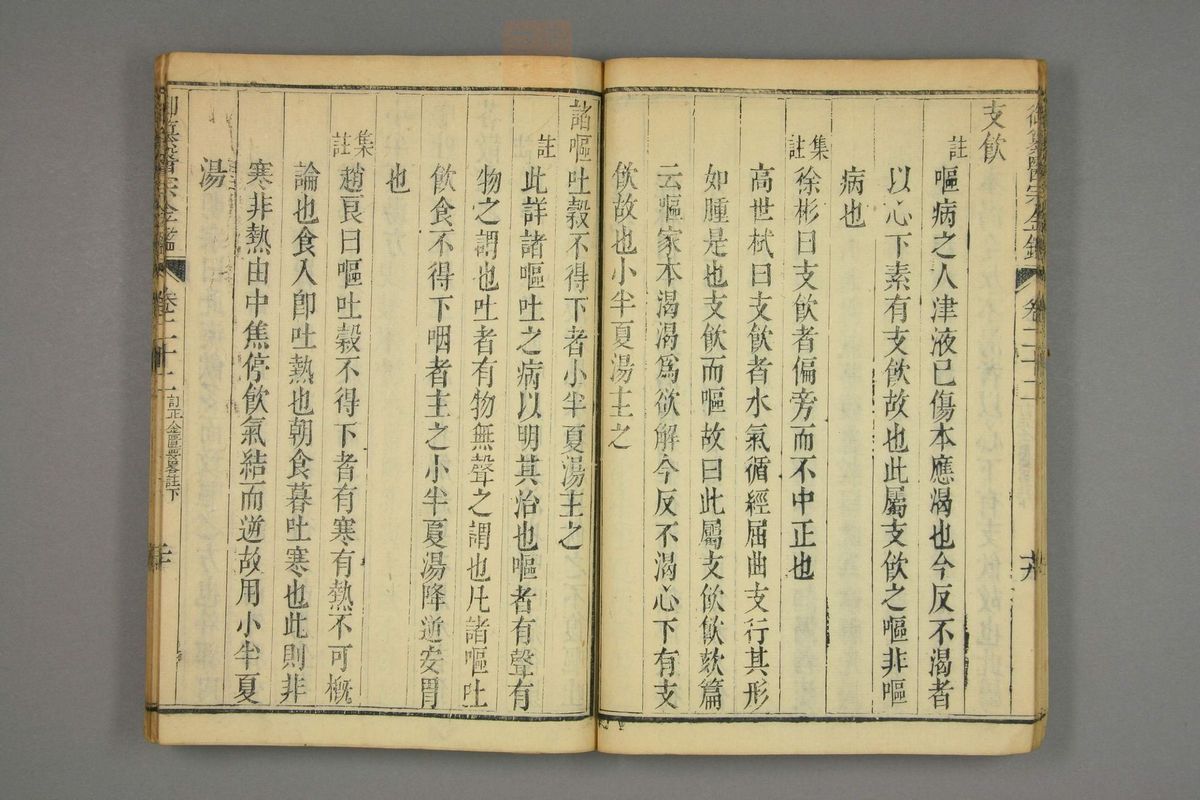 御纂醫宗金鑑 卷二十二 十九
支飲
註 嘔病之人津液已傷本應渴也今反不渴者
以心下素有支飲故也此屬支飲之嘔非嘔
病也
集註 徐彬曰支飲者偏旁而不中正也
高世栻曰支飲者水氣循經屈曲支行其形
如腫是也支飲而嘔故曰此屬支飲飲欬篇
云嘔家本渴渴爲欲解今反不渴心下有支
飲故也小半夏湯主之
諸嘔吐穀不得下者小半夏湯主之
註 此詳諸嘔吐之病以明其治也嘔者有聲有
物之謂也吐者有物無聲之謂也凡諸嘔吐
飲食不得下咽者主之小半夏湯降逆安胃
也
集註 趙良曰嘔吐穀不得下者有寒有熱不可概
論也食入卽吐熱也朝食暮吐寒也此則非
寒非熱由中焦停飲氣結而逆故用小半夏
湯
御纂醫宗金鑑 卷二十二 訂正金匱要畧註下 二十